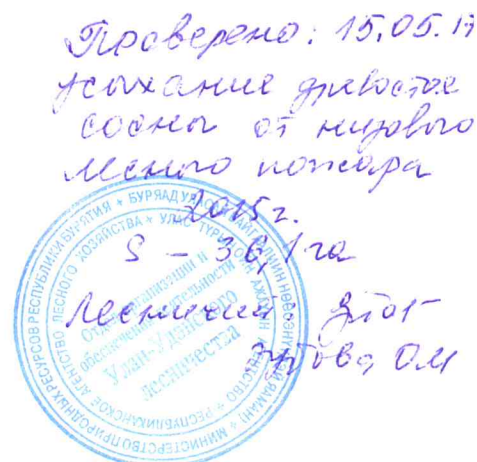 Проверено: 15.05.17
усыхание древостоя
сосны от низового
лесного пожара
2015 г.
S – 36,1 га
Лесничий:
ова О.М
МИНИСТЕРСТВО ПРИРОДНЫХ РЕСУРСОВ РЕСПУБЛИКИ БУРЯТИЯ * БУРЯАД УЛАСАЙ БАЙГААЛИИН
РЕСПУБЛИКАНСКОЕ АГЕНТСТВО ЛЕСНОГО ХОЗЯЙСТВА * УЛАС
Отдел организации и
обеспечения деятельности
Улан-Удэнского
лесничества